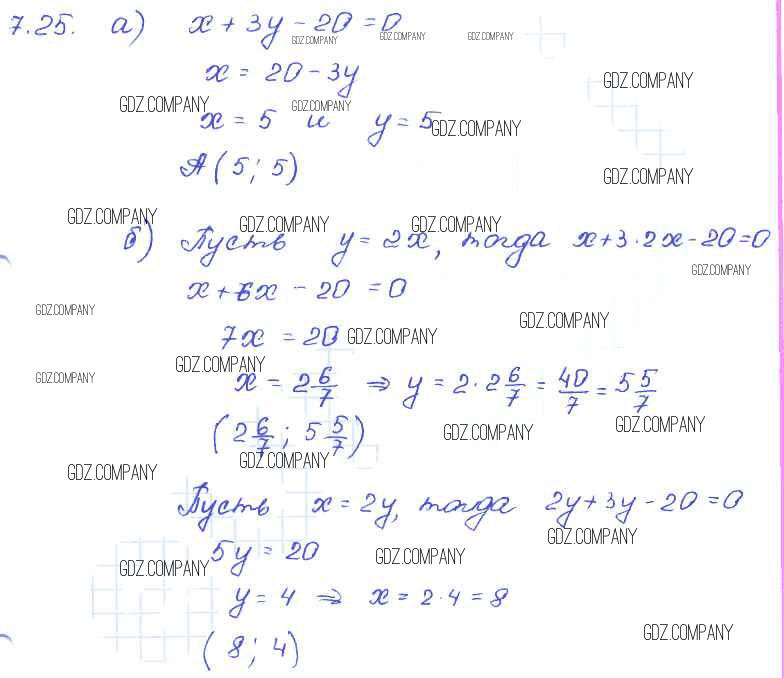 7.25. а) x + 3y - 20 = 0
GDZ.COMPANY GDZ.COMPANY GDZ.COMPANY
x = 20 - 3y
GDZ.COMPANY
GDZ.COMPANY GDZ.COMPANY
x = 5 и y = 5
GDZ.COMPANY
A (5; 5)
GDZ.COMPANY
GDZ.COMPANY GDZ.COMPANY GDZ.COMPANY
б) Пусть y = 2x, тогда x + 3 · 2x - 20 = 0
GDZ.COMPANY
x + 6x - 20 = 0
GDZ.COMPANY GDZ.COMPANY
7x = 20
GDZ.COMPANY
GDZ.COMPANY
GDZ.COMPANY
x = 2 6/7 ⇒ y = 2 · 2 6/7 = 40/7 = 5 5/7
GDZ.COMPANY
(2 6/7; 5 5/7)
GDZ.COMPANY
GDZ.COMPANY
GDZ.COMPANY
Пусть x = 2y, тогда 2y + 3y - 20 = 0
GDZ.COMPANY
5y = 20
GDZ.COMPANY
GDZ.COMPANY
y = 4 ⇒ x = 2 · 4 = 8
GDZ.COMPANY
(8; 4)